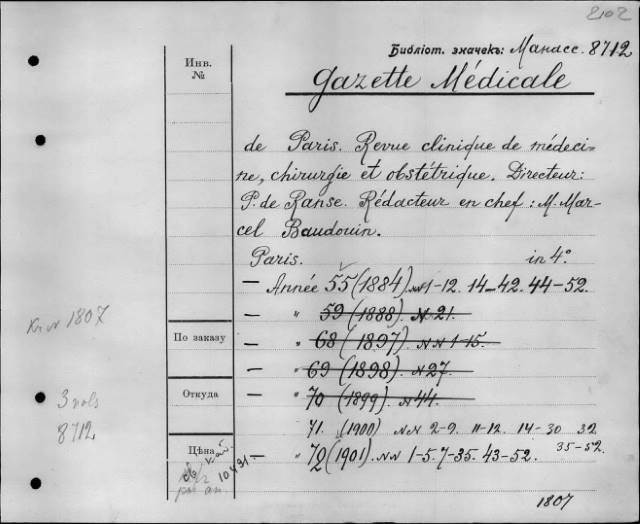 2102
Библіот. значекъ: Манасс. 8712
Инв.
№
Gazette Médicale
de Paris. Revue clinique de médeci-
ne, chirurgie et obstétrique. Directeur:
P. de Ranse. Rédacteur en chef: M. Mar-
cel Baudouin.
Paris. in 4°
— Année 55 (1884) NN 1-12. 14-42. 44-52.
— " 59 (1888). N 21.
— " 68 (1897) NN 1-15.
— " 69 (1898) N 27.
— " 70 (1899) N 44.
71. (1900) NN 2-9. 11-12. 14-30 32
35-52.
— " 72 (1901). NN 1-5. 7-35. 43-52.
1807
По заказу
Откуда
Цѣна
1807
3 vols
8712